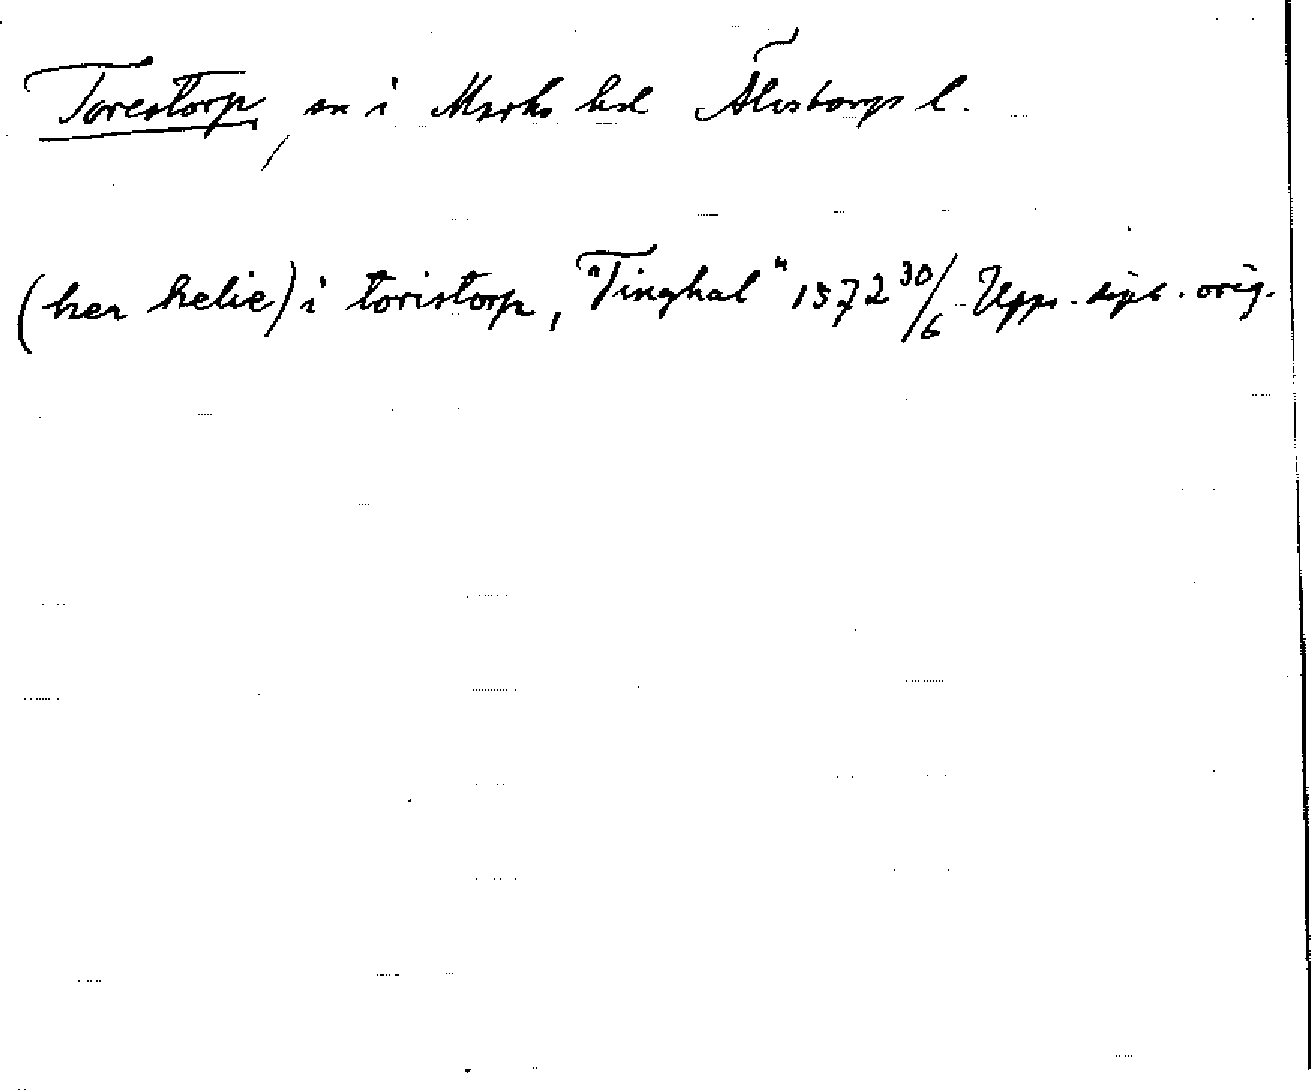 Torestorp, sn i Marks hd Älvsborgs l.
(her helie) i toristorp, "Tinghal" 1572 30/6 Upps. dipl. orig.